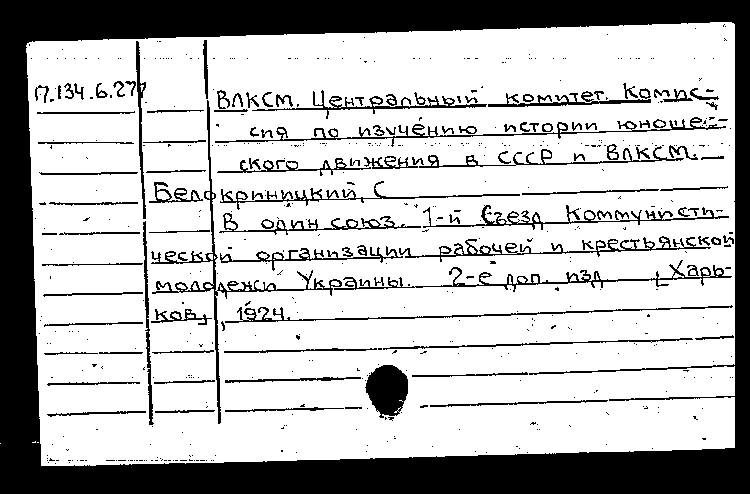 П.134.6.277
ВЛКСМ. Центральный комитет. Комис-
сия по изучению истории юношес-
ского движения в СССР и ВЛКСМ.
Белокриницкий, С
В один союз. 1-й Съезд Коммунисти-
ческой организации рабочей и крестьянской
молодежи Украины. 2-е доп. изд [Харь-
ков], 1924.